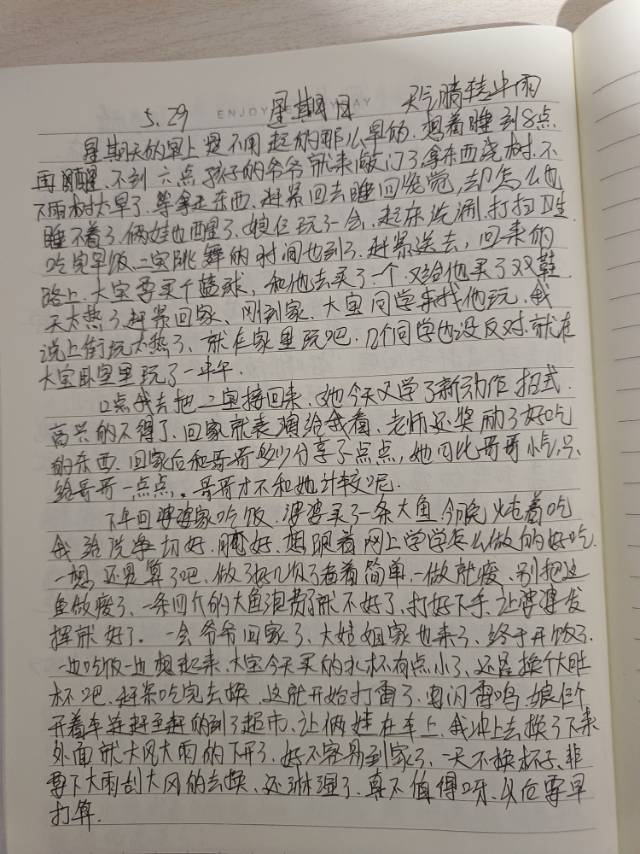 5.29 ENJOY DAY 星期日 天气晴转中雨
星期天的早上是不用起的那么早的,想着睡到8点
再醒,不到六点孩子的爷爷就来敲门了拿东西浇树.不
下雨树太旱了,等拿走东西,赶紧回去睡回笼觉,却怎么也
睡不着了.俩娃也醒了.娘仨玩了一会,起床洗漱.打扫卫生
吃完早饭、二宝跳舞的时间也到了.赶紧送去,回来的
路上,大宝要买个篮球,和他去买了一个,又给他买了双鞋
天太热了赶紧回家、刚到家,大宝同学来找他玩,我
说上街玩太热了、就在家里玩吧.几个同学也没反对.就在
大宝卧室里玩了一上午.
12点我去把二宝接回来.她今天又学了新动作招式.
高兴的不得了.回家就表演给我看、老师还奖励了好吃
的东西.回家后和哥哥分享了点点,她可比哥哥小气,只
给哥哥一点点。哥哥才不和她计较呢.
下午回婆婆家吃饭,婆婆买了一条大鱼.今晚炖着吃
我给洗净切好.腌好.想跟着网上学学怎么做的好吃.
一想还是算了吧、做了好几次了看着简单一做就废、别把这
鱼做废了、一条四斤的大鱼浪费了就不好了,打好下手,让婆婆发
挥就好了。一会爷爷回家了、大姑姐家也来了、终于开饭了.
一边吃饭一边想起来、大宝今天买的水杯有点小了、还是换个大的
杯吧、赶紧吃完去换.这就开始打雷了、电闪雷鸣,娘仨个
开着车连赶至赶的到了超市、让俩娃在车上,我冲上去换了下来
外面就大风大雨的下开了、好不容易到家了、一天不换杯子、非
要下大雨刮大风的去换、还淋湿了.真不值得呀、以后要早
打算.